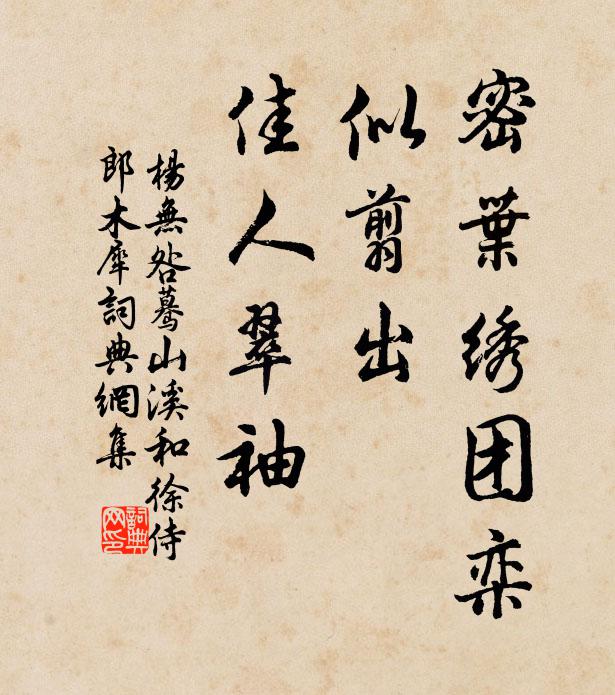 密叶绣团栾
似翦出
佳人翠袖
楊無咎驀山溪和徐侍
郎木犀詞典網集
詞典网印